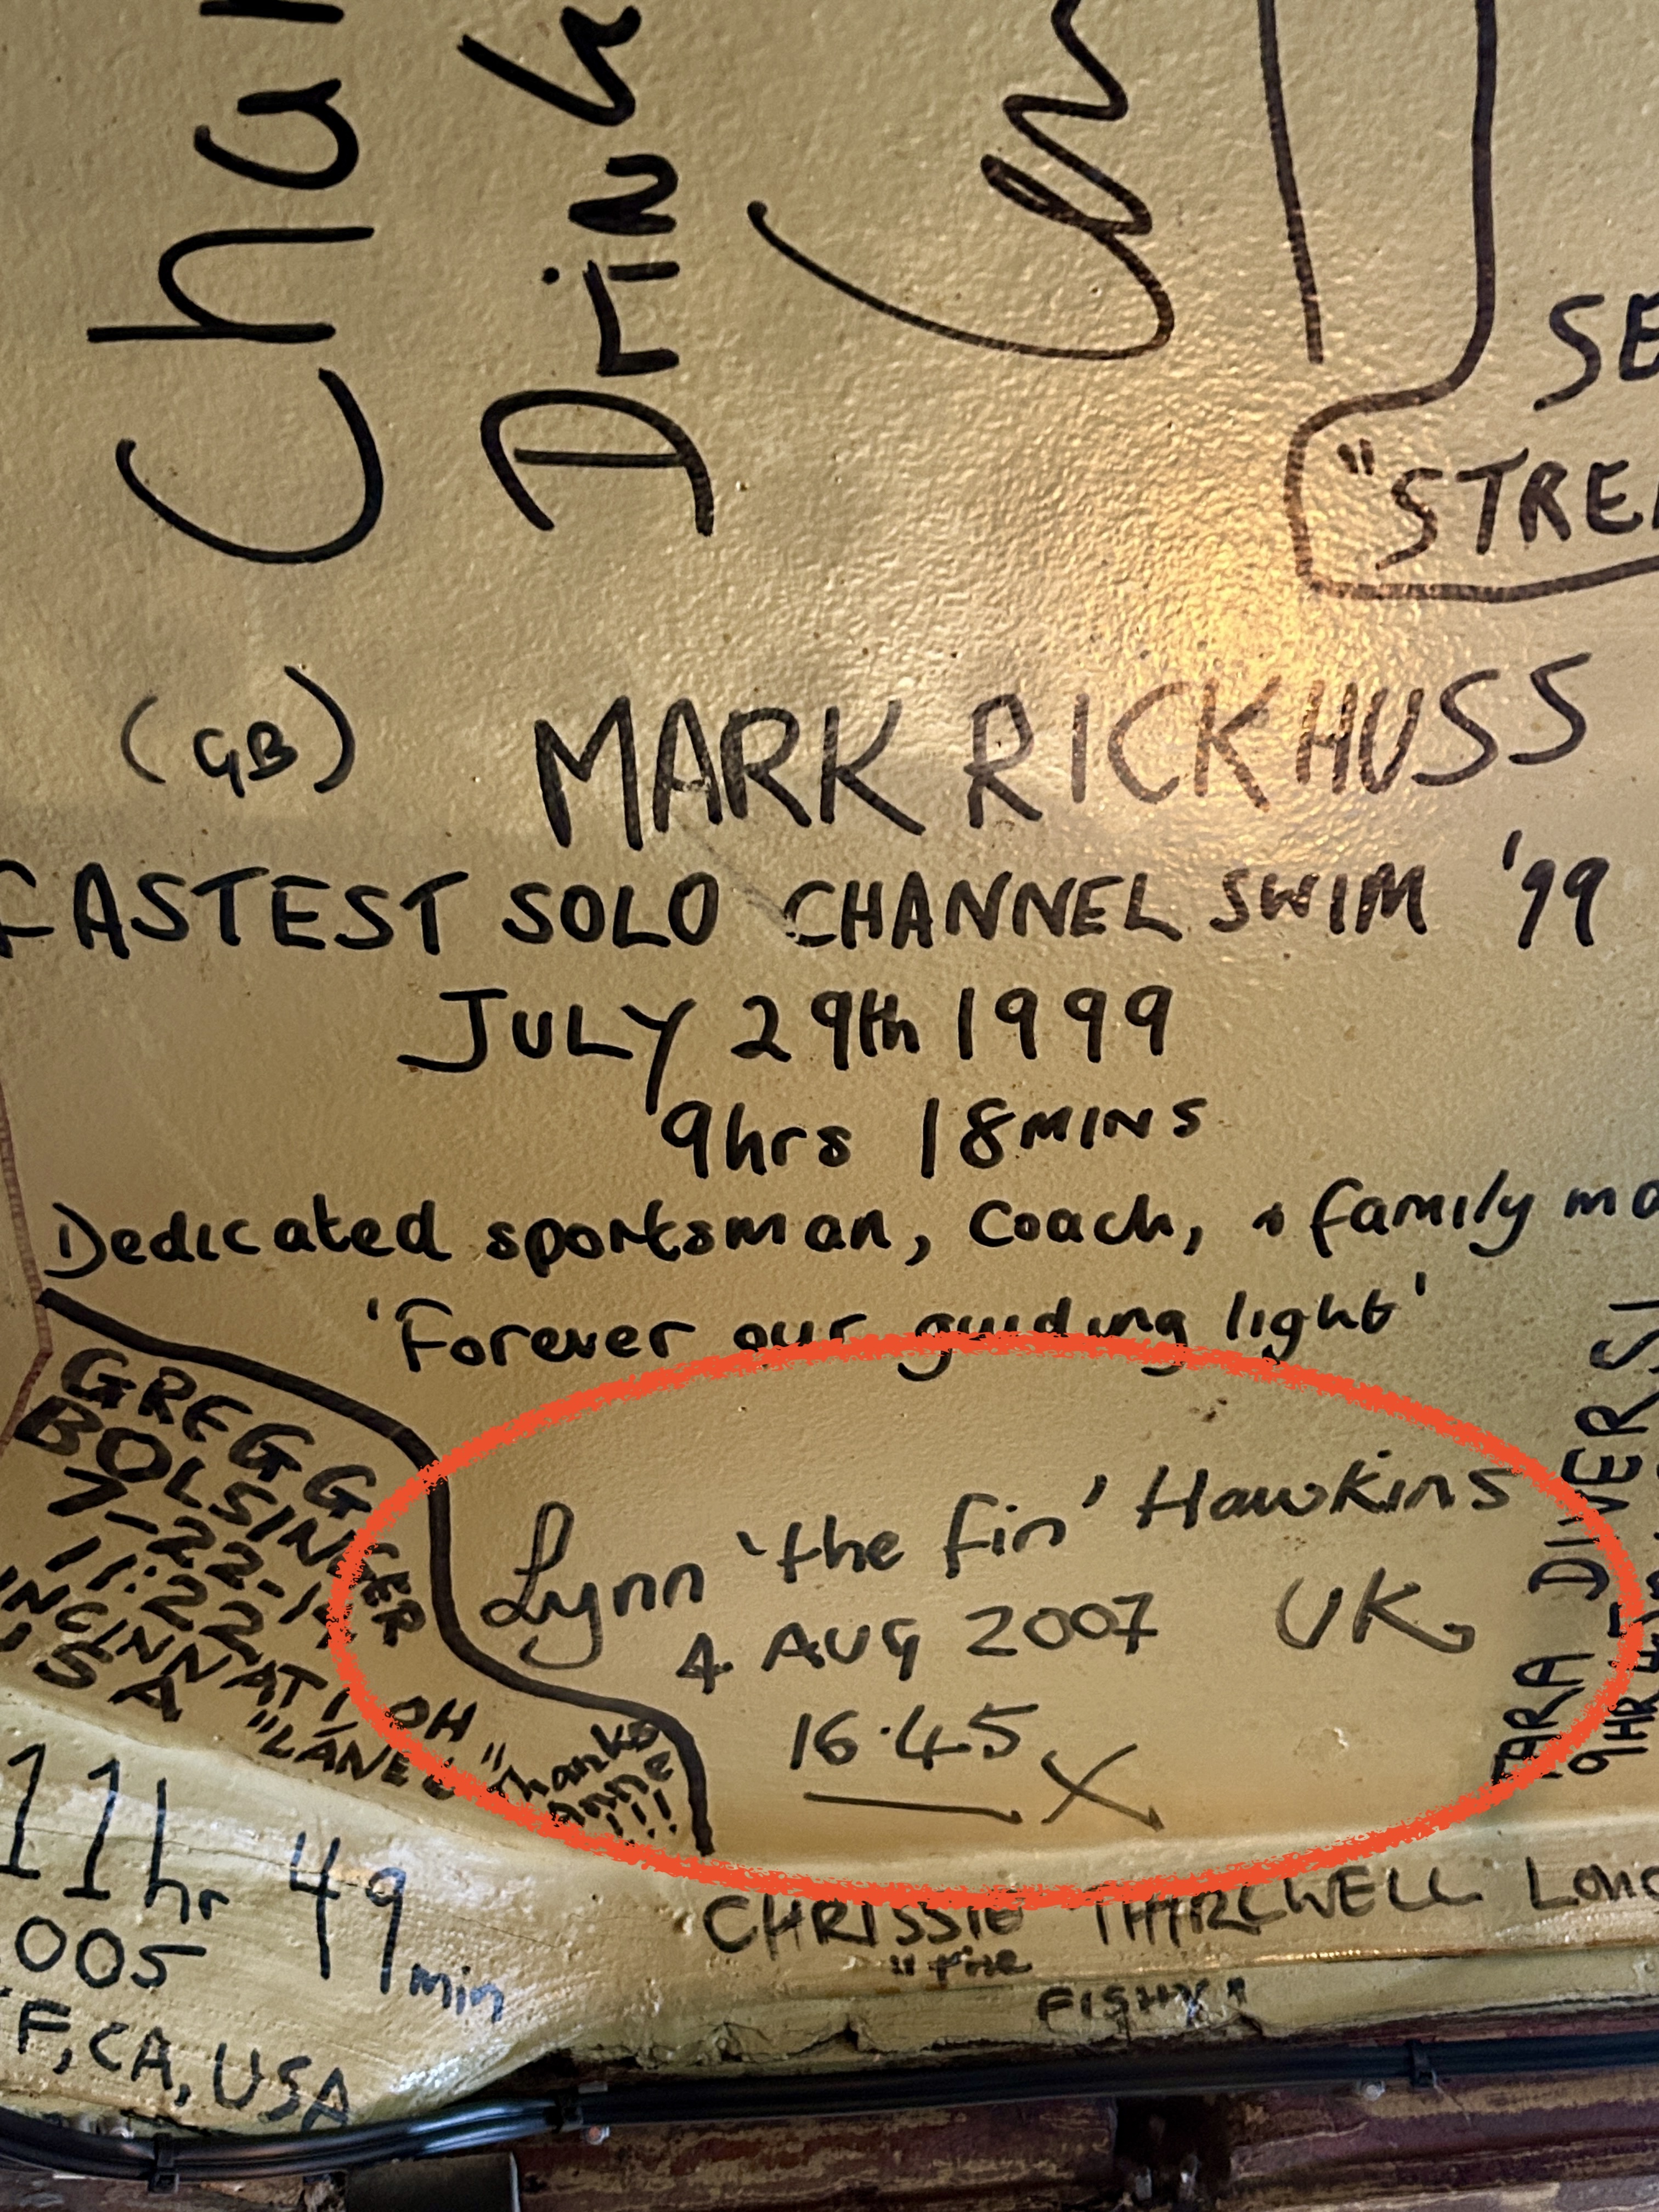 Cha
Drink
SE
"STRE
(GB) MARK RICKHUSS
FASTEST SOLO CHANNEL SWIM '99
JULY 29th 1999
9hrs 18MINS
Dedicated sportsman, coach, + family ma
'Forever our guiding light'
GREGG
BOLSINGER
7-22-
11:22
CINCINNATI OH
USA
"LANE
Thanks
anne
!!!
Lynn 'the fin' Hawkins
4 AUG 2007 UK
16.45
X
TARA DIVERSI
9HR
11hr 49min
005
F, CA, USA
CHRISSIE THIRLWELL Lond
"The
FISHY"